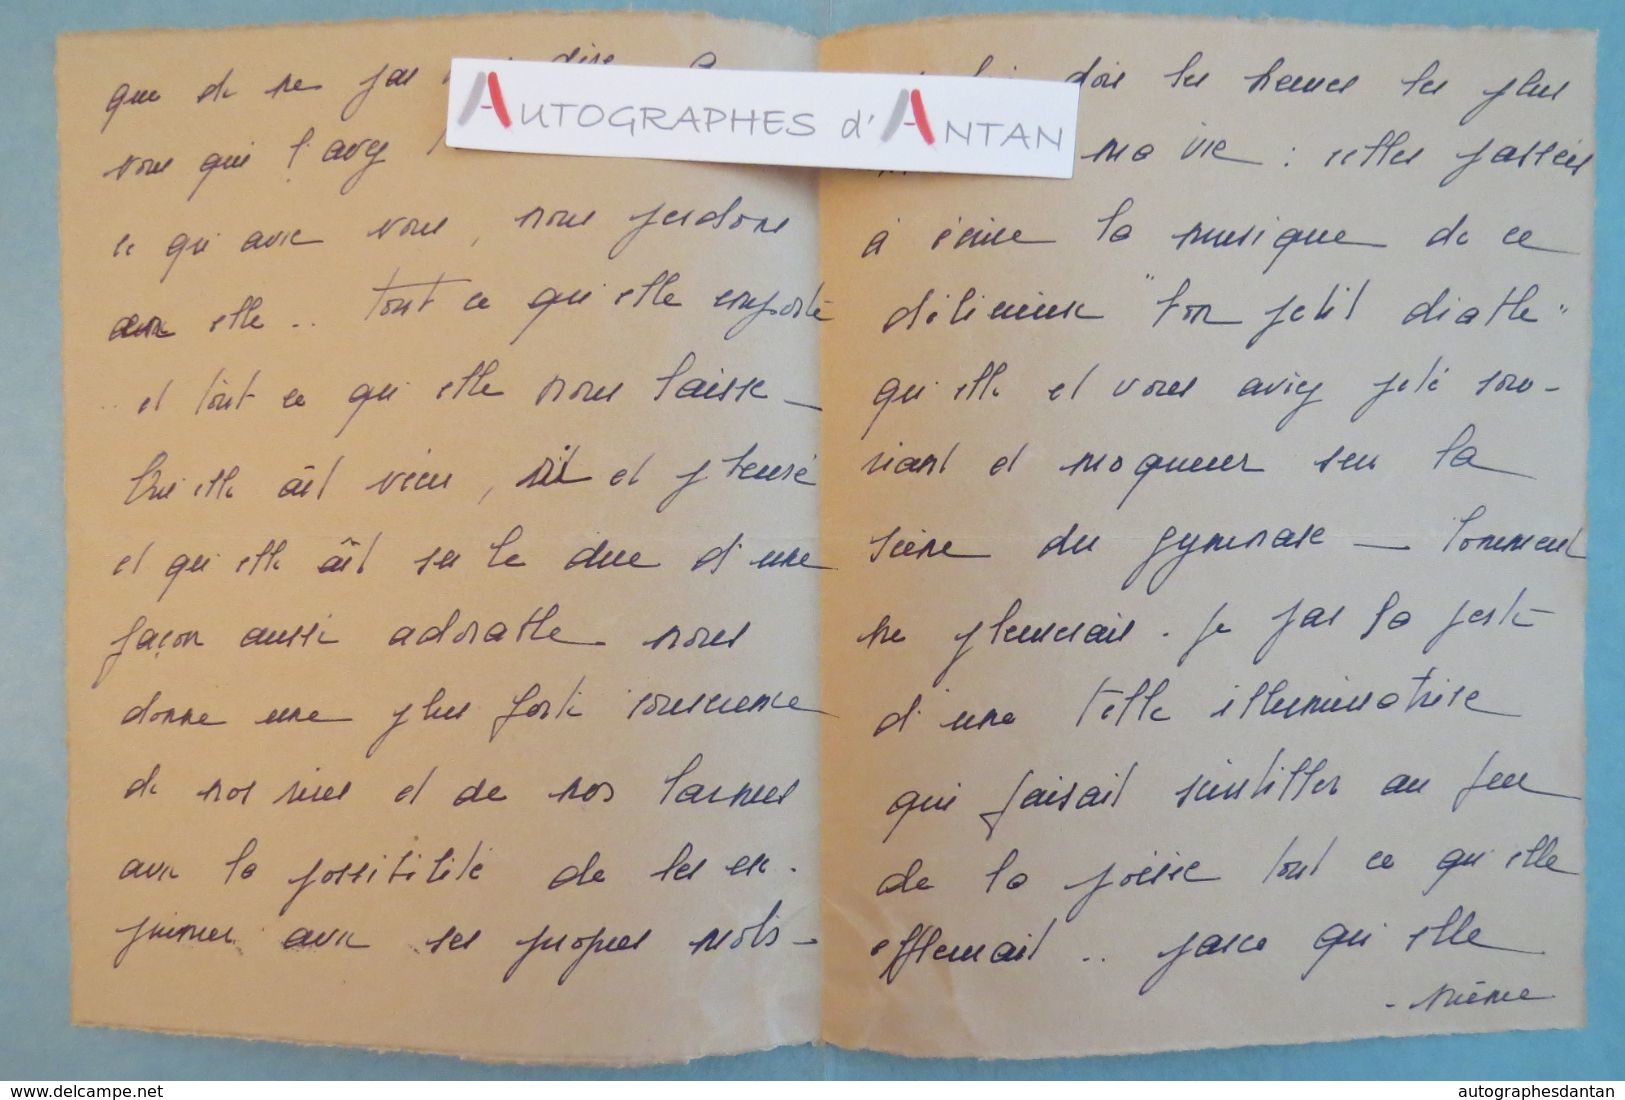 que de ne pas dire
vous qui l'avez
ce qu'avec vous, nous perdons
avec elle .. tout ce qu'elle emporte
et tout ce qu'elle nous laisse —
Qu'elle ait vécu, ri et pleuré
et qu'elle ait su le dire d'une
façon aussi adorable nous
donne une plus forte conscience
de nos rires et de nos larmes
avec la possibilité de les ex-
primer avec ses propres mots —
AUTOGRAPHES d'ANTAN
dois les heures les plus
ma vie : celles passées
à écrire la musique de ce
délicieux "bon petit diable"
qu'elle et vous aviez jeté sou-
riant et moqueur sur la
scène du gymnase — Comment
ne pleurerais-je pas la perte
d'une telle illuminatrice
qui faisait scintiller au feu
de la poésie tout ce qu'elle
effleurait .. parce qu'elle
- même
www.delcampe.net
autographesdantan